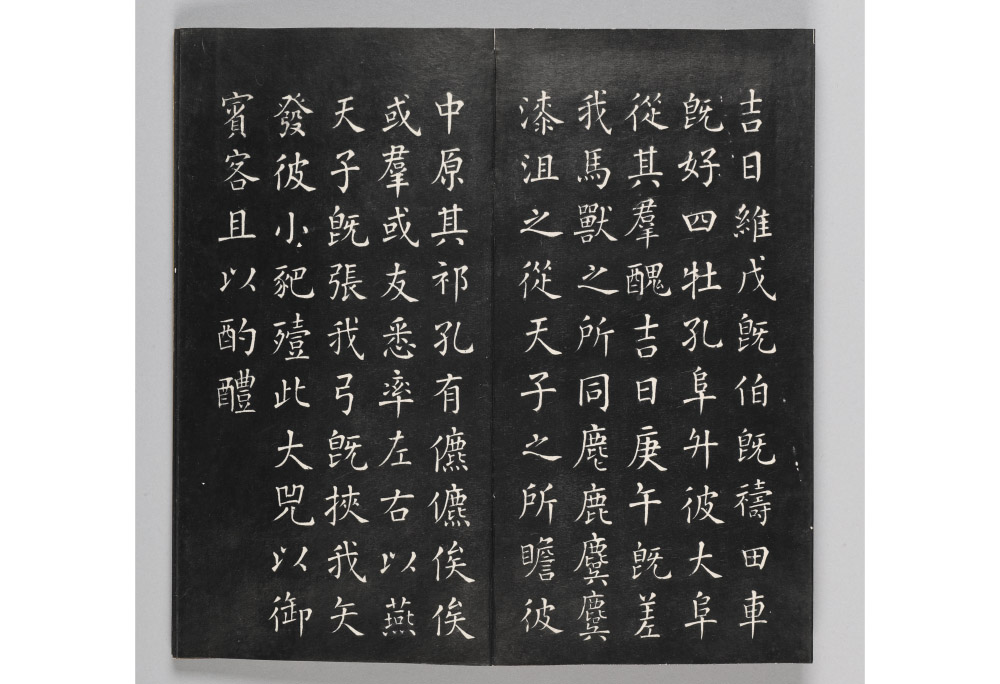 吉日維戊既伯既禱田車
既好四牡孔阜升彼大阜
從其羣醜吉日庚午既差
我馬獸之所同麀鹿麌麌
漆沮之從天子之所瞻彼
中原其祁孔有儦儦俟俟
或羣或友悉率左右以燕
天子既張我弓既挾我矢
發彼小豝殪此大兕以御
賓客且以酌醴